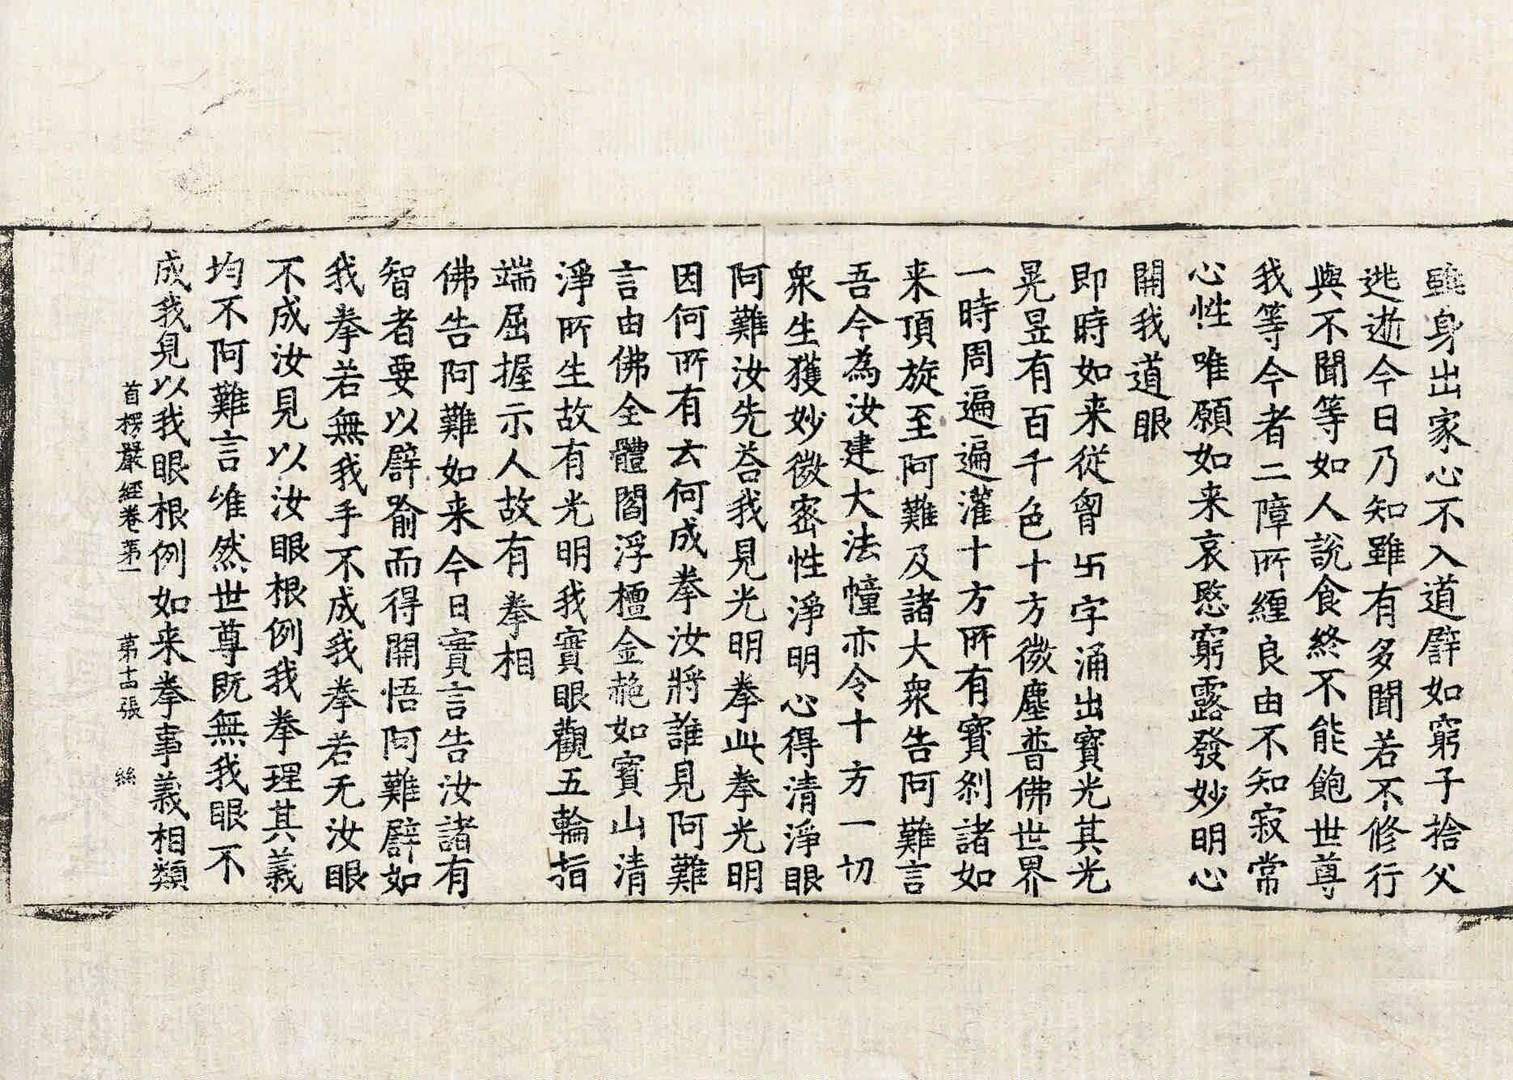 雖身出家心不入道譬如窮子捨父
逃逝今日乃知雖有多聞若不修行
與不聞等如人說食終不能飽世尊
我等今者二障所纏良由不知寂常
心性唯願如来哀愍窮露發妙明心
開我道眼
即時如来從胷卐字涌出寶光其光
晃昱有百千色十方微塵普佛世界
一時周遍遍灌十方所有寶剎諸如
来頂旋至阿難及諸大衆告阿難言
吾今為汝建大法幢亦令十方一切
衆生獲妙微密性淨明心得清淨眼
阿難汝先荅我見光明拳此拳光明
因何所有云何成拳汝將誰見阿難
言由佛全體閻浮檀金赩如寶山清
淨所生故有光明我實眼觀五輪指
端屈握示人故有拳相
佛告阿難如来今日實言告汝諸有
智者要以譬喻而得開悟阿難譬如
我拳若無我手不成我拳若无汝眼
不成汝見以汝眼根例我拳理其義
均不阿難言唯然世尊既無我眼不
成我見以我眼根例如来拳事義相類
首楞嚴經卷第一 第十四張 絲